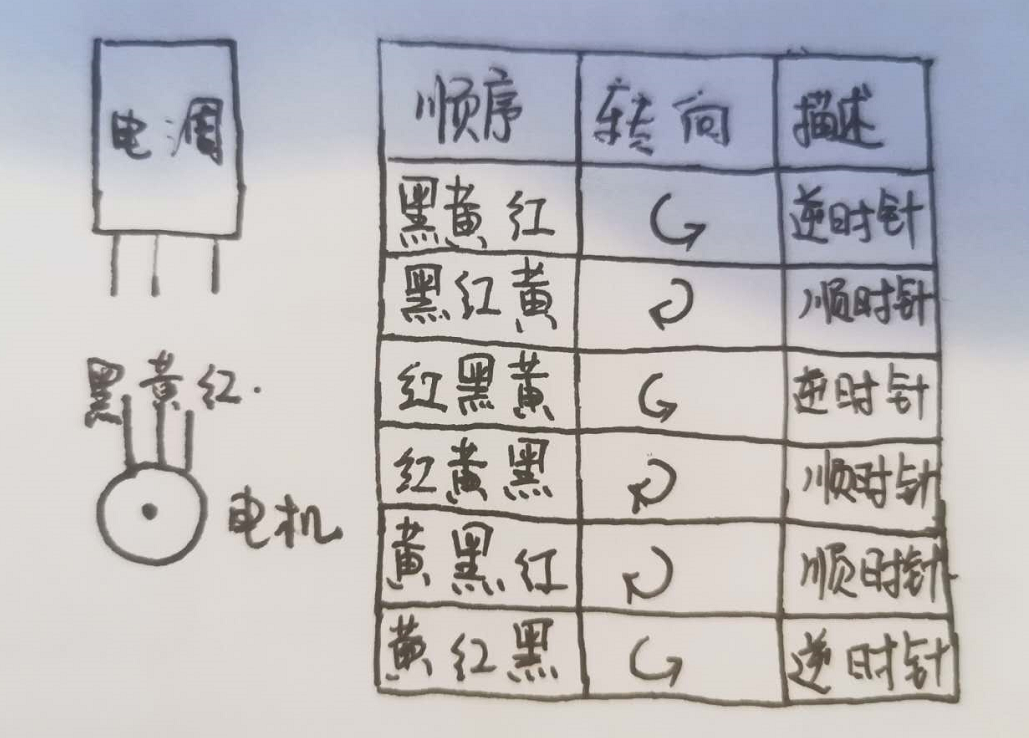 电调
黑黄红.
电机
顺序 转向 描述
黑黄红 逆时针
黑红黄 顺时针
红黑黄 逆时针
红黄黑 顺时针
黄黑红 顺时针
黄红黑 逆时针